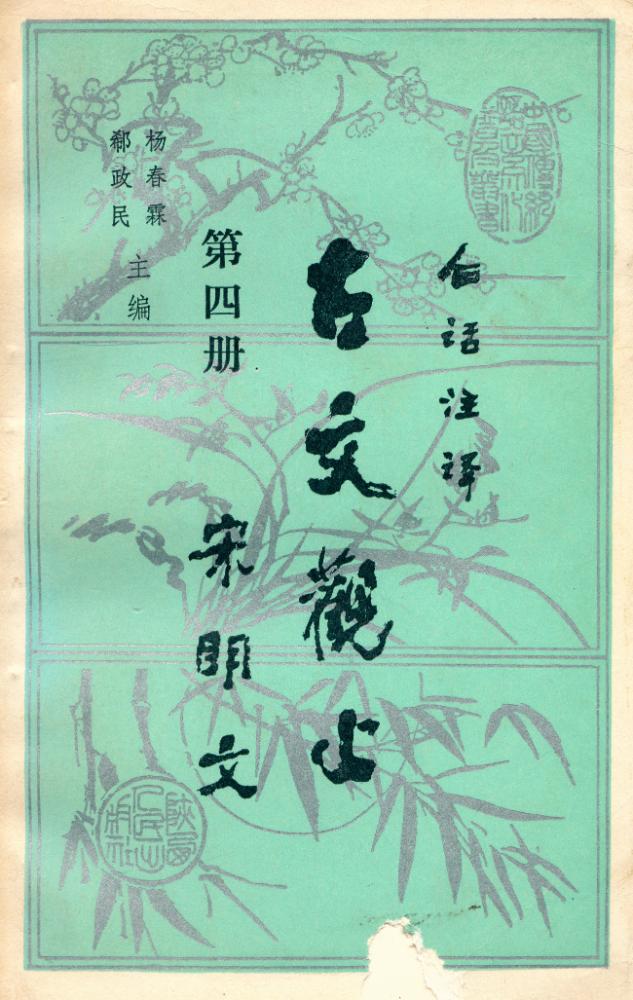 白话注译
古文觀止
第四册
宋明文
杨春霖
郗政民
主编
陝西
人民出
版社